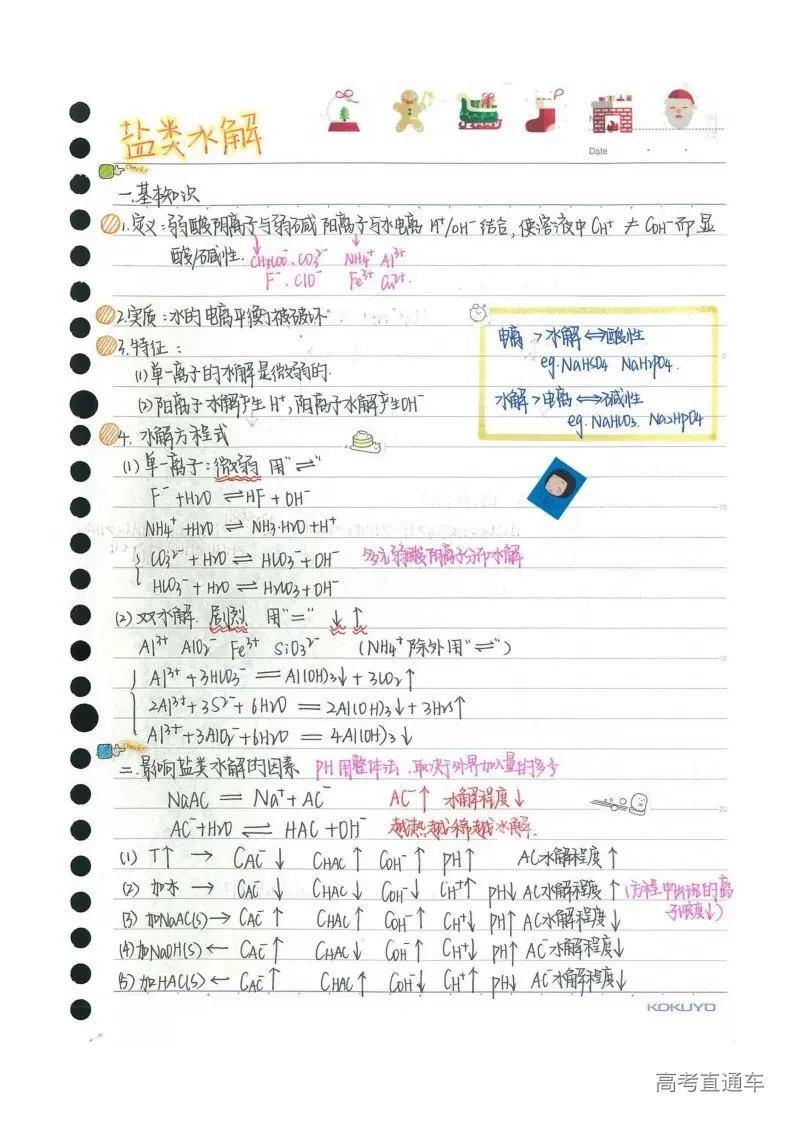 盐类水解
Date
check!
一.基本知识
1.定义:弱酸阴离子与弱碱阳离子与水电离 H⁺/OH⁻ 结合,使溶液中CH⁺ ≠ COH⁻而显
酸/碱性.
CH3COO⁻.CO3²⁻ NH4⁺ Al³⁺
F⁻.ClO⁻ Fe³⁺ Cu²⁺.
2.实质:水的电离平衡被破坏
3.特征:
(1)单一离子的水解是微弱的.
(2)阳离子水解产生H⁺,阳离子水解产生OH⁻
电离 > 水解 ⇔ 酸性
eg.NaHSO4 NaH2PO4.
水解 > 电离 ⇔ 碱性
eg.NaHCO3. Na2HPO4
4. 水解方程式
(1)单一离子:微弱 用"⇌"
F⁻ + H2O ⇌ HF + OH⁻
NH4⁺ + H2O ⇌ NH3·H2O + H⁺
CO3²⁻ + H2O ⇌ HCO3⁻ + OH⁻ 多元弱酸阴离子分布水解
HCO3⁻ + H2O ⇌ H2CO3 + OH⁻
(2)双水解. 剧烈 用"=" ↓ ↑
Al³⁺ AlO2⁻ Fe³⁺ SiO3²⁻ (NH4⁺除外用"⇌")
Al³⁺ + 3HCO3⁻ = Al(OH)3↓ + 3CO2↑
2Al³⁺ + 3S²⁻ + 6H2O = 2Al(OH)3↓ + 3H2S↑
Al³⁺ + 3AlO2⁻ + 6H2O = 4Al(OH)3↓
check!
二.影响盐类水解的因素 PH用整体法.取决于外界加入量的多少
NaAC = Na⁺ + AC⁻ AC⁻↑ 水解程度↓
AC⁻ + H2O ⇌ HAC + OH⁻ 越热越稀越水解.
(1) T↑ → CAC⁻↓ CHAC↑ COH⁻↑ pH↑ AC⁻水解程度↑
(2) 加水 → CAC⁻↓ CHAC↓ COH⁻↓ CH⁺↑ pH↓ AC⁻水解程度↑(方程中出现的离
子浓度↓)
(3) 加NaAC(s)→ CAC⁻↑ CHAC↑ COH⁻↑ CH⁺↓ pH↑ AC⁻水解程度↓
(4)加NaOH(s) ← CAC⁻↑ CHAC↓ COH⁻↑ CH⁺↓ pH↑ AC⁻水解程度↓
(5)加HAC(s) ← CAC⁻↑ CHAC↑ COH⁻↓ CH⁺↑ pH↓ AC⁻水解程度↓
KOKUYO
高考直通车